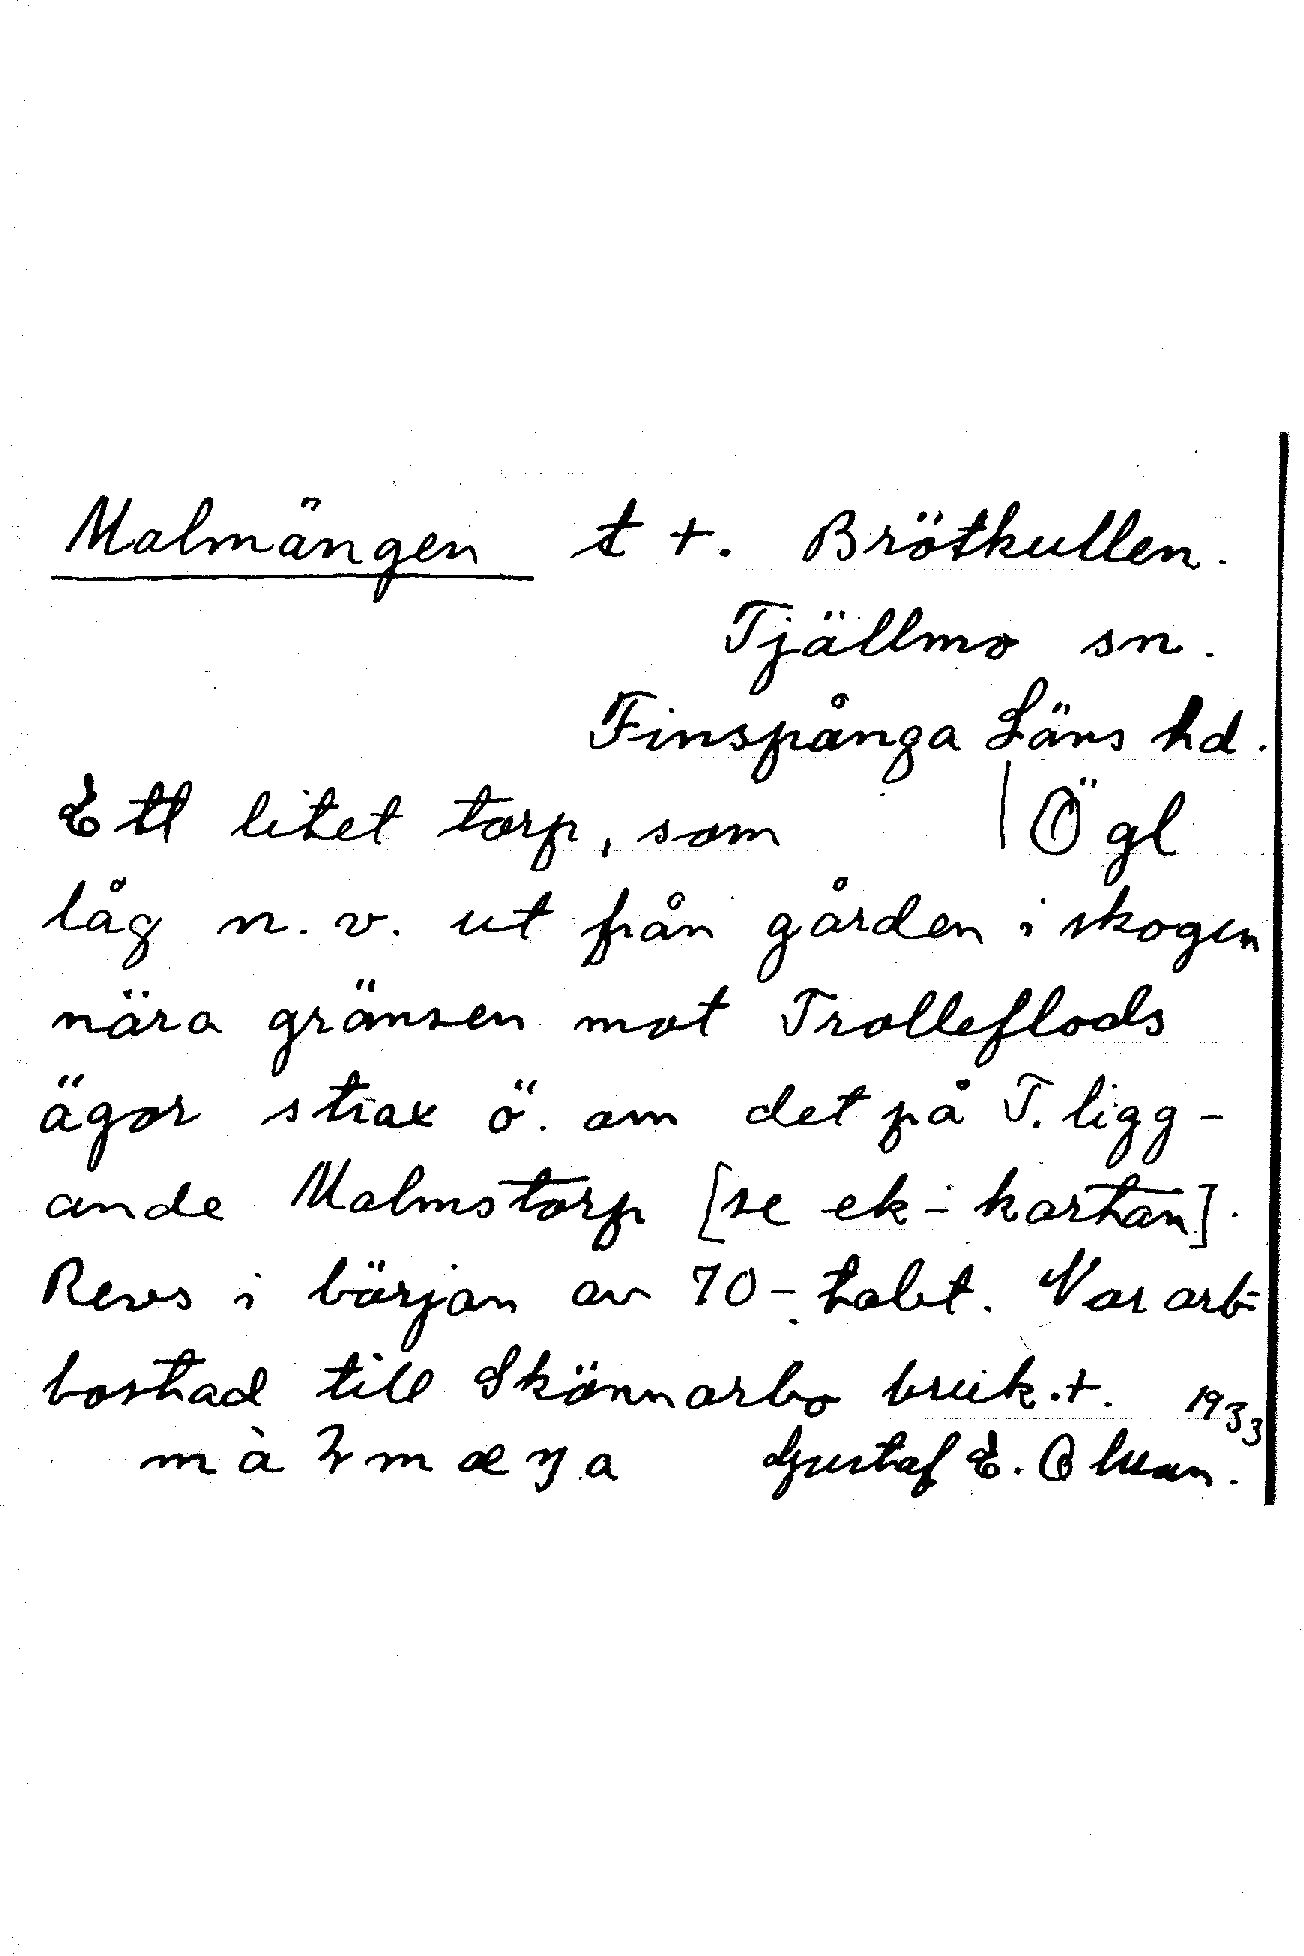 Malmängen t +. Brötkullen.
Tjällmo sn.
Finspånga Läns hd.
Ett litet torp, som | Ögl
låg n.v. ut från gården i skogen
nära gränsen mot Trolleflods
ägor strax ö. om det på T. ligg-
ande Malmstorp [se ek-kartan].
Revs i början av 70-talet. Var arb=
bostad till Skönnarbo bruk. +. 1933
Gustaf E.